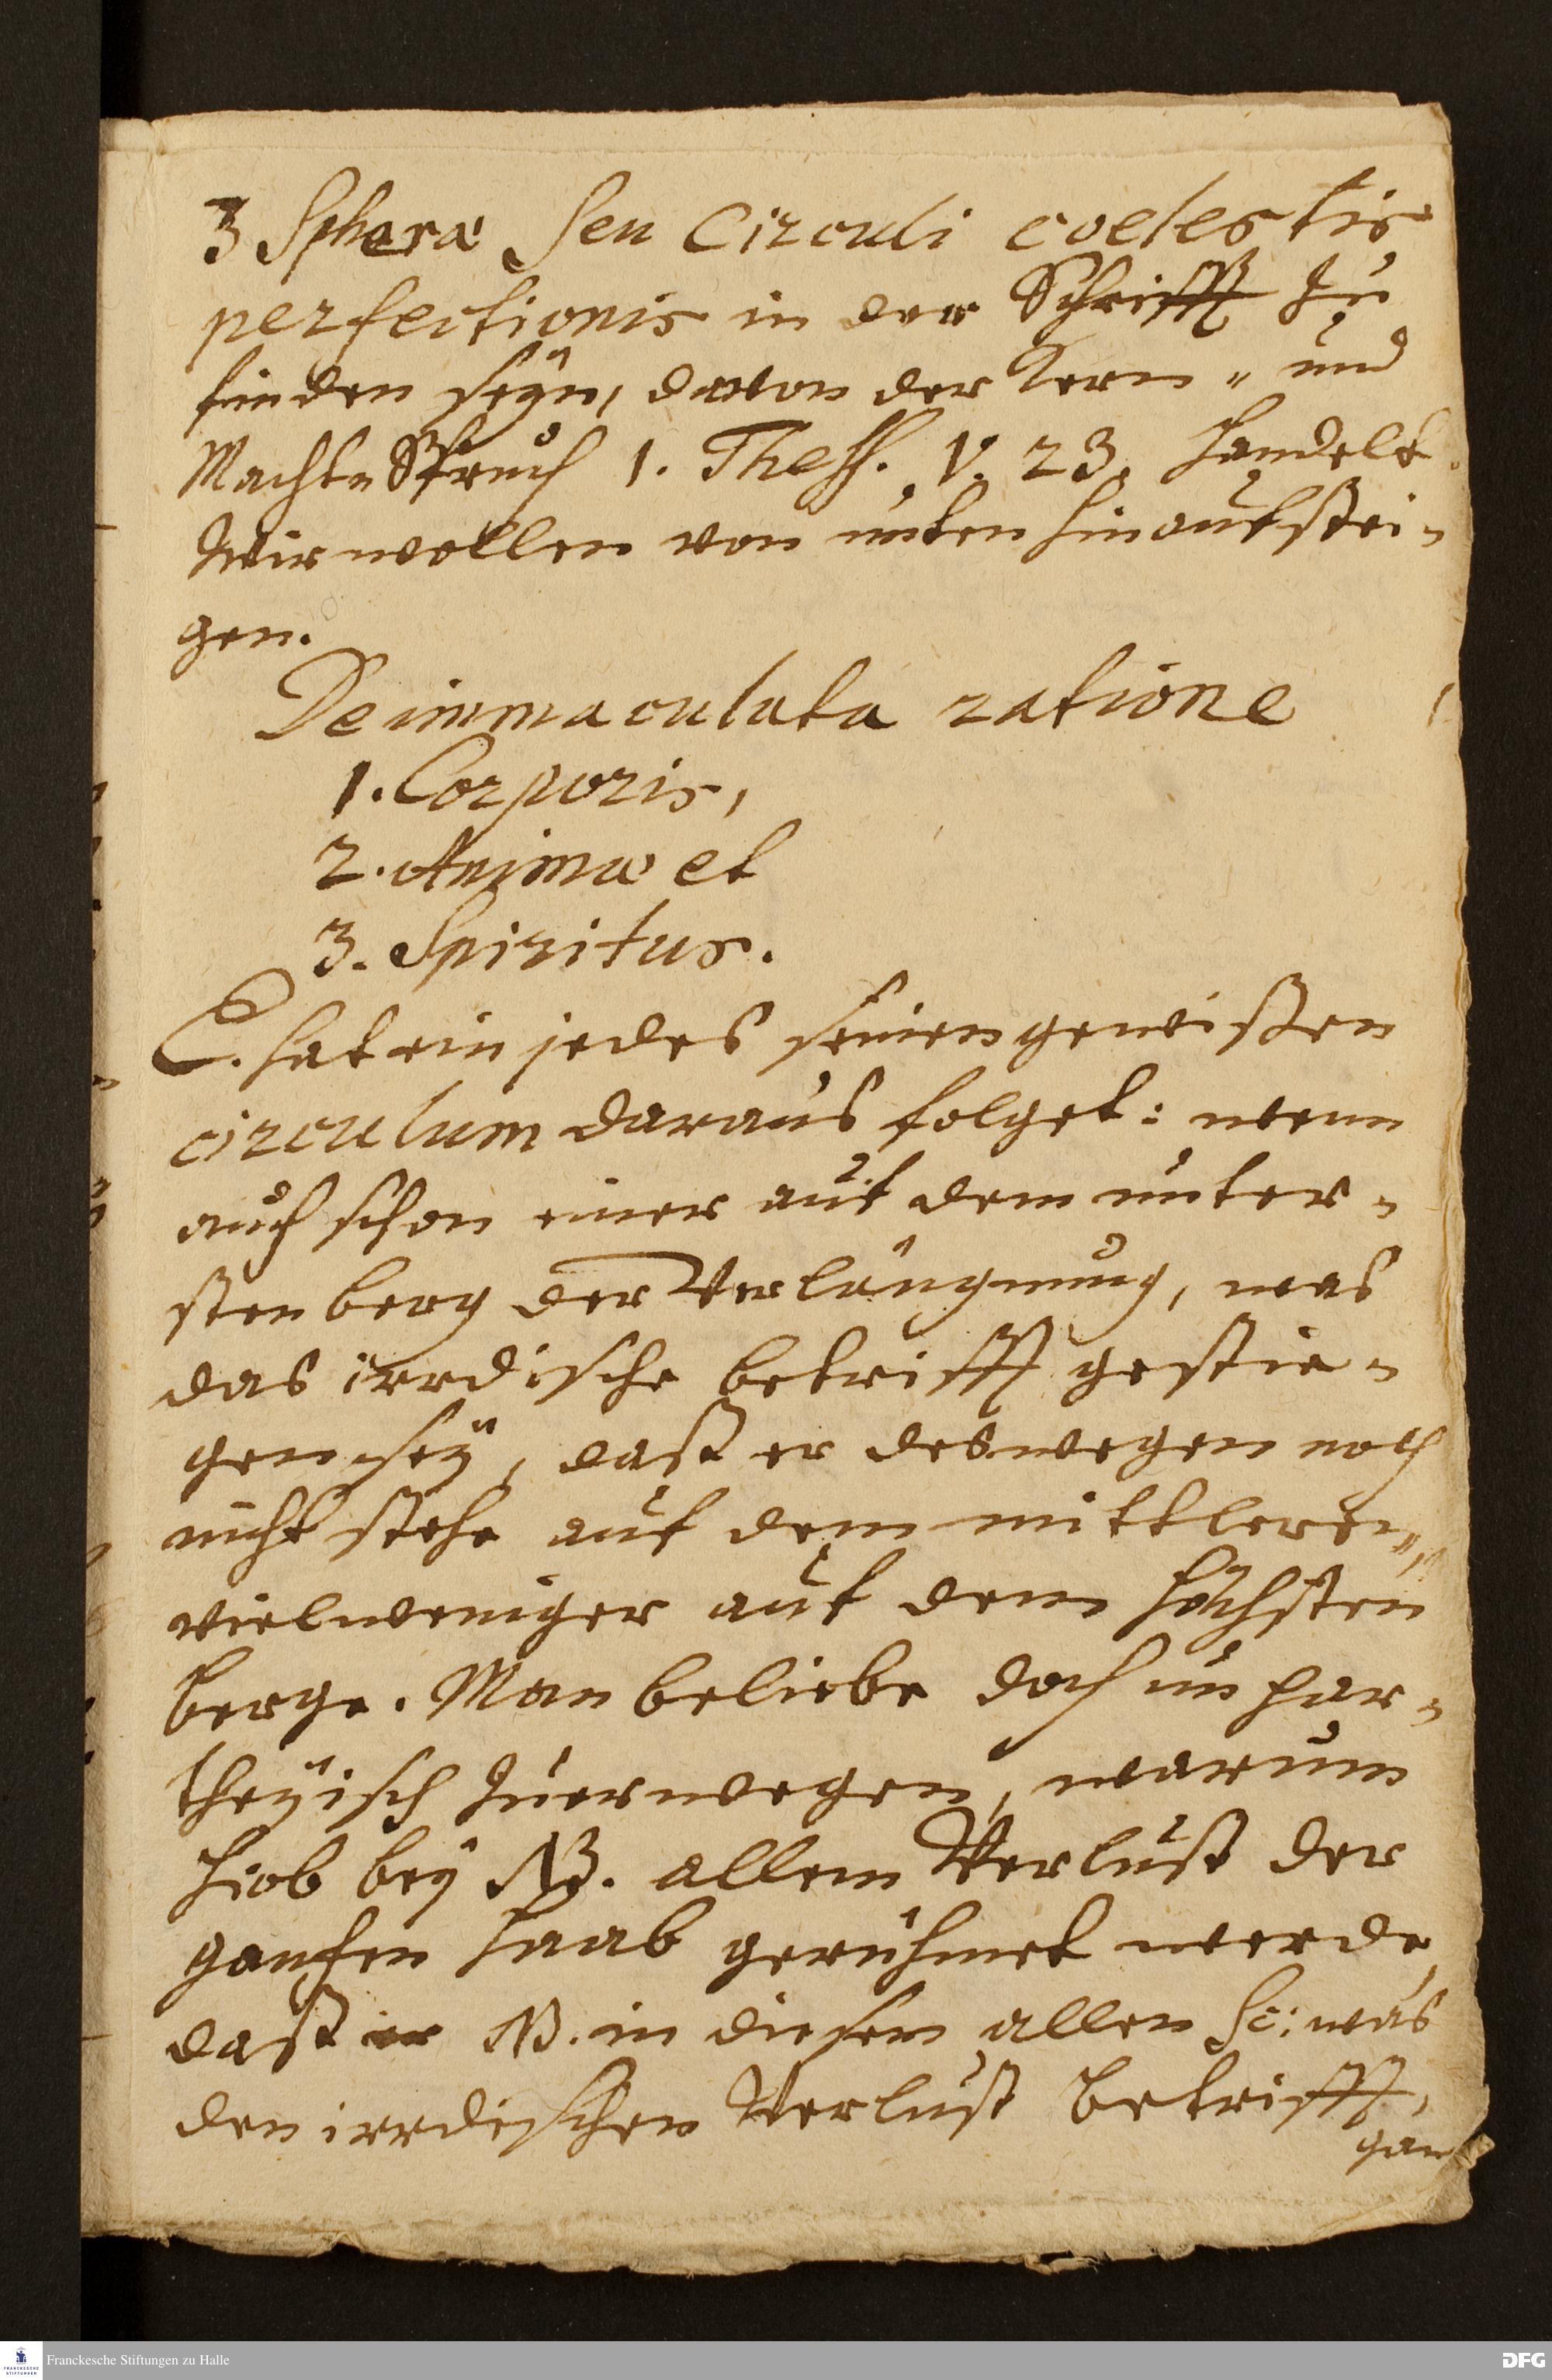 3 Sphæræ seu Circuli coelestis
perfectionis in der Schrifft zu
finden seyn, davon der Kern- und
Macht-Spruch 1. Thess. V. 23. handelt.
Wir wollen von unten hinaufstei-
gen.
De immaculata ratione
1. Corporis,
2. Animæ et
3. Spiritus.
E. hat ein jedes seinen gewißen
circulum daraus folget: wenn
auch schon einer auf dem unter-
sten berg der Verläugnung, was
das irrdische betrifft gestie-
gen sey, daß er deswegen noch
nicht stehe auf dem mittleren,
vielweniger auf dem höchsten
berge. Man beliebe doch unpar-
theyisch zu erwegen, warum
Hiob bey NB. allem Verlust der
gantzen Haab gerühmet werde
daß er NB. in diesem allen sc: was
den irrdischen Verlust betrifft,
gar
Franckesche Stiftungen zu Halle
FRANCKESCHE STIFTUNGEN
DFG